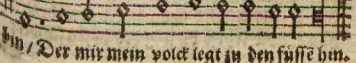 hin / Der mir mein volck legt zu den füssē hin.